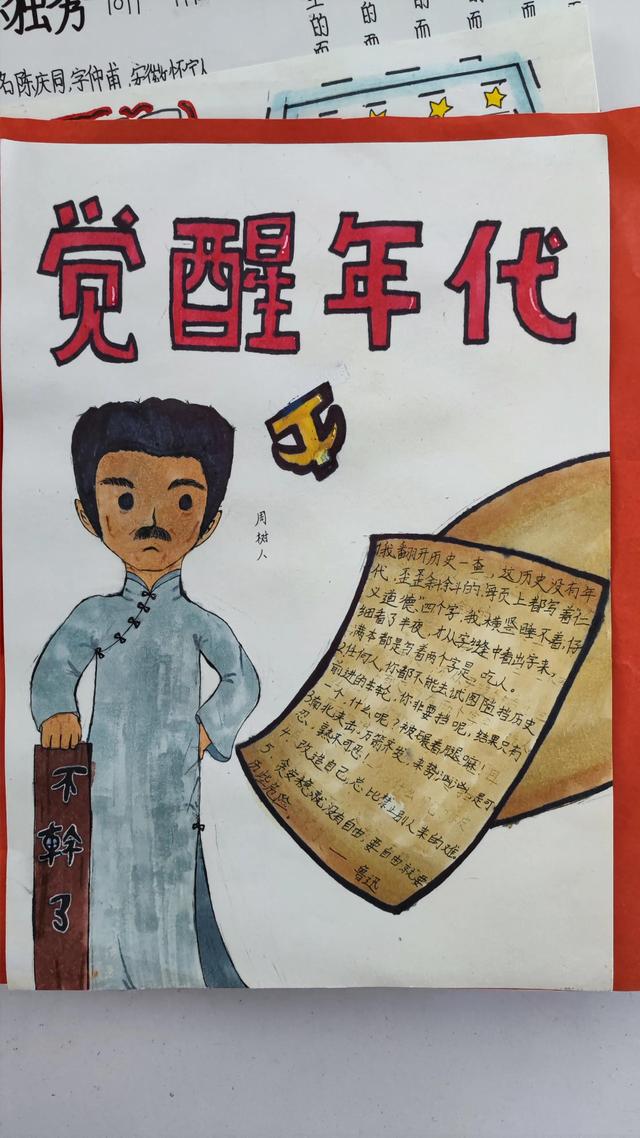 独秀
名陈庆同,字仲甫,安徽怀宁人
的而
的而
的而
而
而
觉醒年代
周树人
不幹了
1我翻开历史一查,这历史没有年
代,歪歪斜斜的每页上都写着“仁
义道德”四个字,我横竖睡不着,仔
细看了半夜,才从字缝中看出字来,
满本都是写着两个字是“吃人。
2任何人,你都不能去试图阻挡历史
前进的车轮,你非要挡呢,结果只有
一个什么呢?被碾着腿嘛!
孰不可忍!
4.改造自己,总比禁止别人来的难.
5.贪安稳就没有自由,要自由就要
历些危险。
——鲁迅